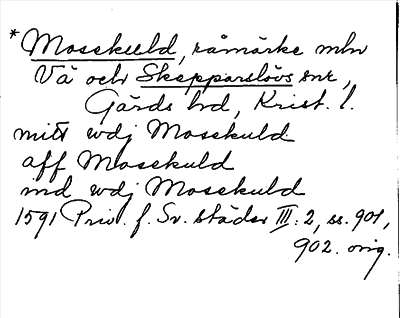 * Mosekuld, råmärke mln
Vä och Skepparslövs snr,
Gärds hd, Krist. l.
mitt wdj Mosekuld
aff Mosekuld
ind wdj Mosekuld
1591 Priv. f. Sv. städer III:2, ss. 901,
902. orig.